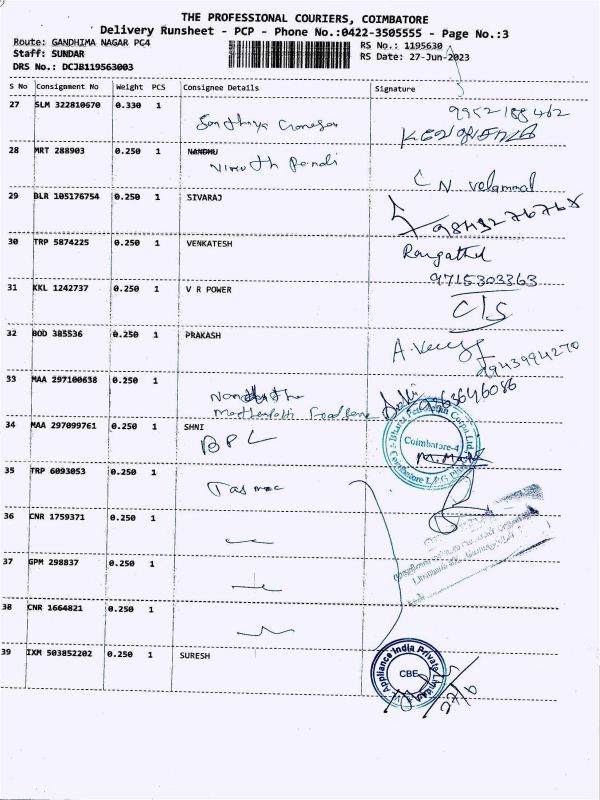 THE PROFESSIONAL COURIERS, COIMBATORE
Delivery Runsheet - PCP - Phone No.:0422-3505555 - Page No.:3
Route: GANDHIMA NAGAR PC4
RS No.: 1195630
Staff: SUNDAR
RS Date: 27-Jun-2023
DRS No.: DCJB119563003
S No Consignment No Weight PCS Consignee Details Signature
27 SLM 322810670 0.330 1
9952188462
28 MRT 288903 0.250 1 NANDHU
C N Velammal
29 BLR 105176754 0.250 1 SIVARAJ
9843276768
30 TRP 5874225 0.250 1 VENKATESH
31 KKL 1242737 0.250 1 V R POWER
9715303363
C/S
32 BOD 385536 0.250 1 PRAKASH
9943994270
33 MAA 297100638 0.250 1
9363646086
34 MAA 297099761 0.250 1 SHNI
BPL
Coimbatore-4
35 TRP 6093053 0.250 1
Tasmac
36 CNR 1759371 0.250 1
37 GPM 298837 0.250 1
38 CNR 1664821 0.250 1
39 IXM 503852202 0.250 1 SURESH
Appliance India Private Limited
CBE
27/6